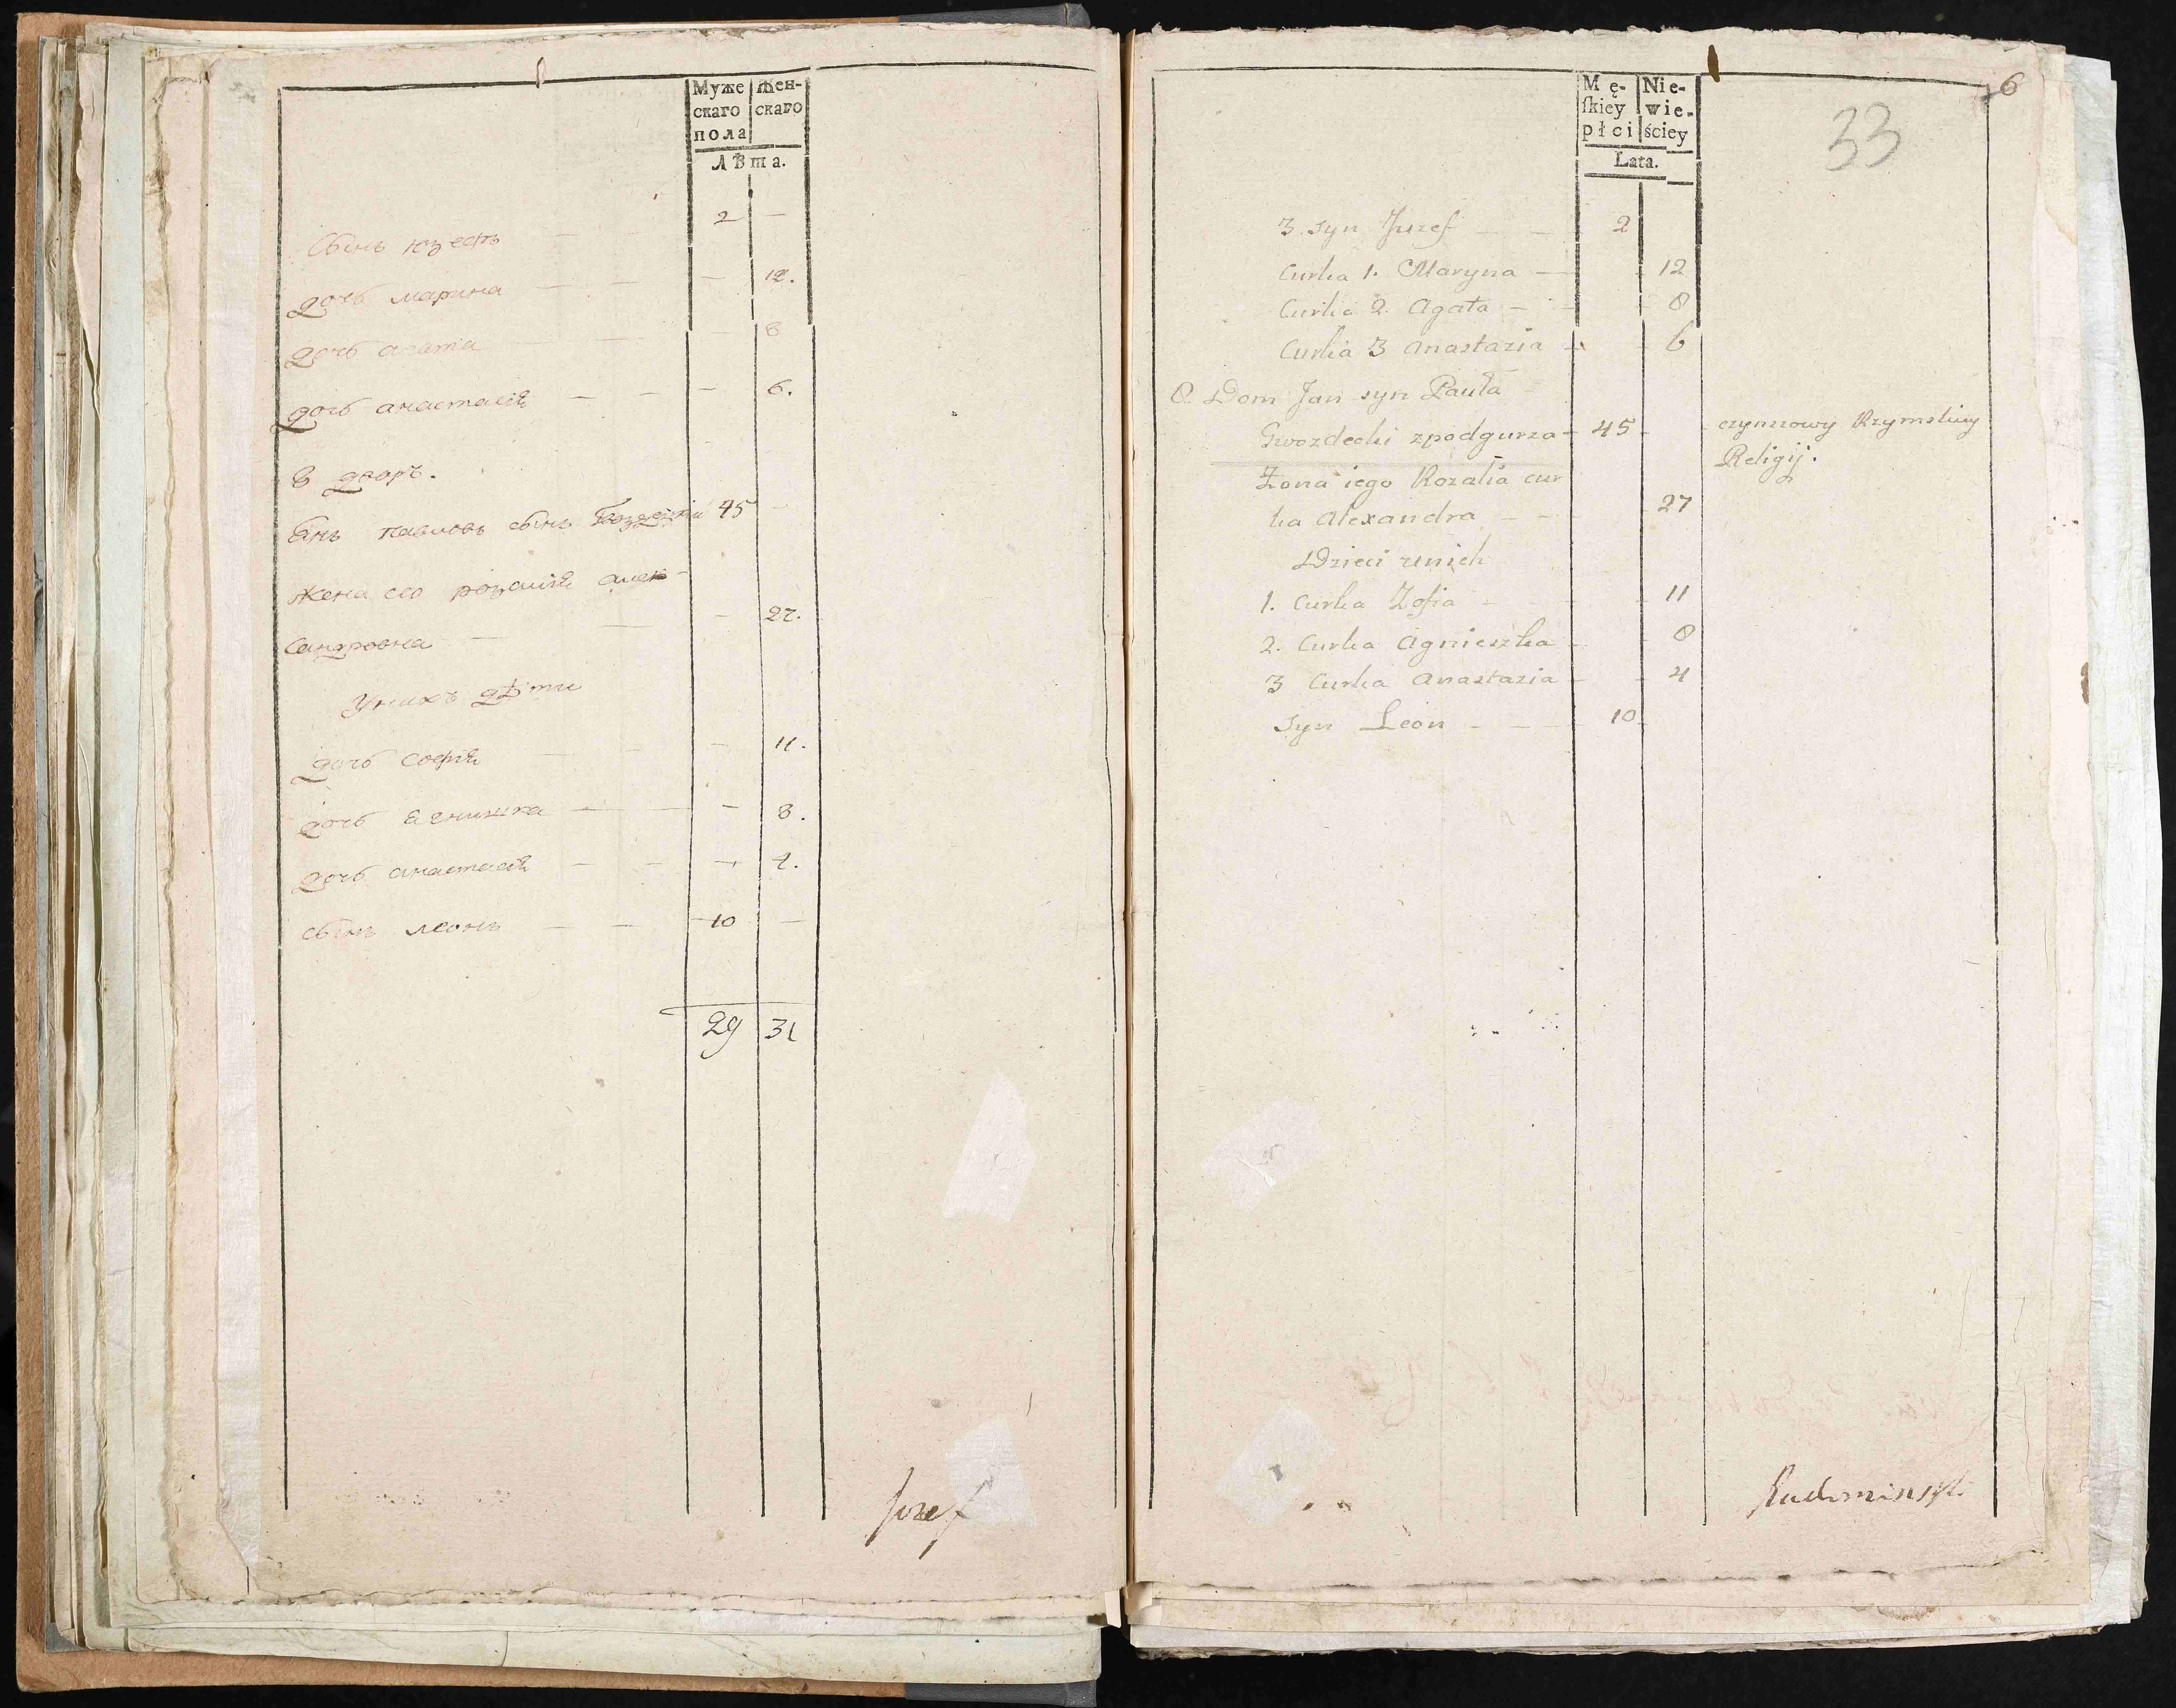 Муже Жен-
скаго скаго
пола
Лѣта.
Сынъ юзефъ — — 2 —
дочь марина — — — 12.
дочь агата — — — 8
дочь анастасія — — — 6.
8 дворъ.
Янъ павловъ сынъ Гвоздецкій 45 —
жена его розалія алек-
сандровна — — — 27.
У нихъ дѣти
дочь софія — — — 11.
дочь Ягнишка — — — 8.
дочь анастасія — — — 4.
сынъ леонъ — — 10 —
29 31
Jozef
6
33
Mę- Nie-
ſkiey wie-
płci ściey
Lata.
3. syn Juzef — — 2
Curka 1. Maryna — 12
Curka 2. Agata — 8
Curka 3 Anastazia — 6
8. Dom Jan syn Pauła
Gwozdecki zpodgurza — 45 — czynszowy Rzymskiey
Religij.
Żona iego Rozalia cur
ka Alexandra — — 27
Dzieci unich
1. Curka Zofia — 11
2. Curka Agnieszka — 8
3 Curka Anastazia — 4
Syn Leon — — 10